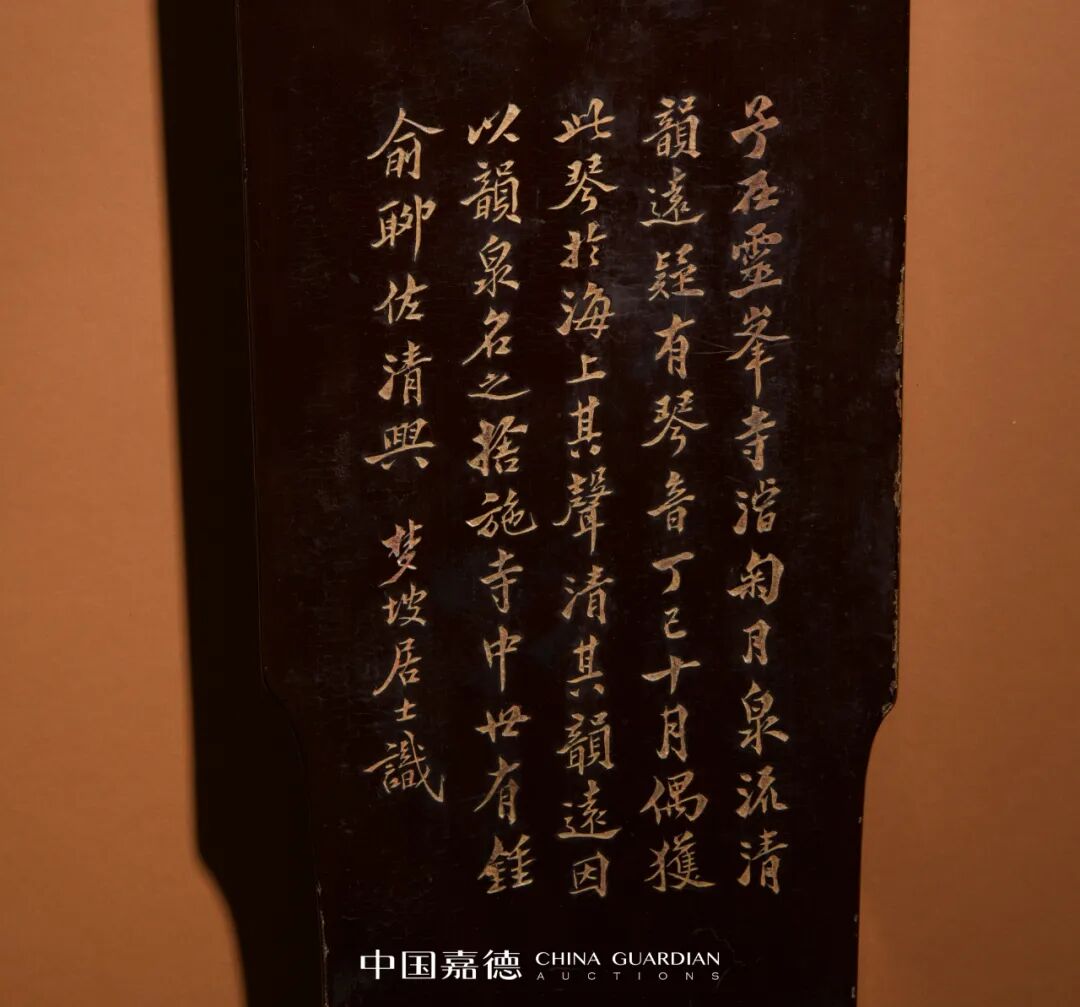 予在靈峯寺濳掬月泉流清
韻遠疑有琴音丁巳十月偶獲
此琴於海上其聲清其韻遠因
以韻泉名之捨施寺中世有鍾
俞聊佐清興
梦坡居士識
中国嘉德 CHINA GUARDIAN
AUCTIONS